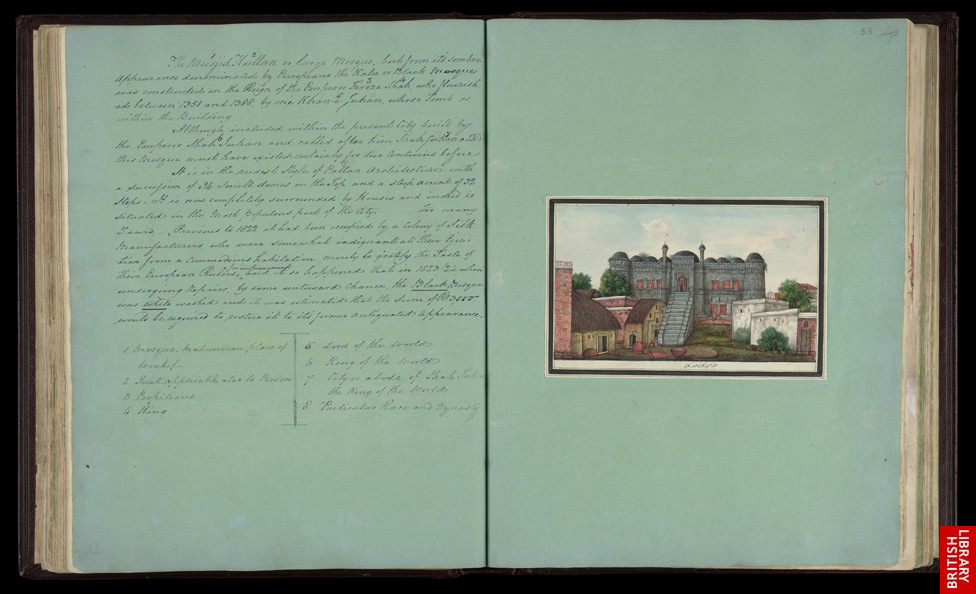 The Musjid Kullan or large Mosque, but from its sombre
appearance denominated by Europeans the Kalee or Black Mosque
was constructed in the Reign of the Emperor Feroze Shah who flourish
ed between 1351 and 1388 by one Khan Juhan whose Tomb is
within the Building
Although included within the present City built by
the Emperor Shah Juhan and called after him Shah Juhan a
this Mosque must have existed certainly for two Centuries before
It is in the rudest Style of Pattan Architecture with
a succession of 34 Small domes on the Top and a steep ascent of 32
Steps. It is now completely surrounded by Houses and indeed is
situated in the most populous part of the City. For many
Years, Previous to 1822 it had been occupied by a Colony of Silk
Manufacturers who were somewhat indignant at their Ejec-
tion from a commodious habitation merely to gratify the Taste of
their European Rulers, and it so happened that in 1823/24 when
undergoing repairs, by some untowards chance the Black Mosque
was white washed and it was estimated that the Sum of 3000
would be required to restore it to its former antiquated appearance.
1 Mosque, Mahomedan place of
worship
2 Great applicable also to
3 Propitious
4 King
5 Lord of the World
6 King of the World
7 City or abode of Shah Juhan
the King of the World.
8 Particular Race and Dynasty
53
BRITISH
LIBRARY